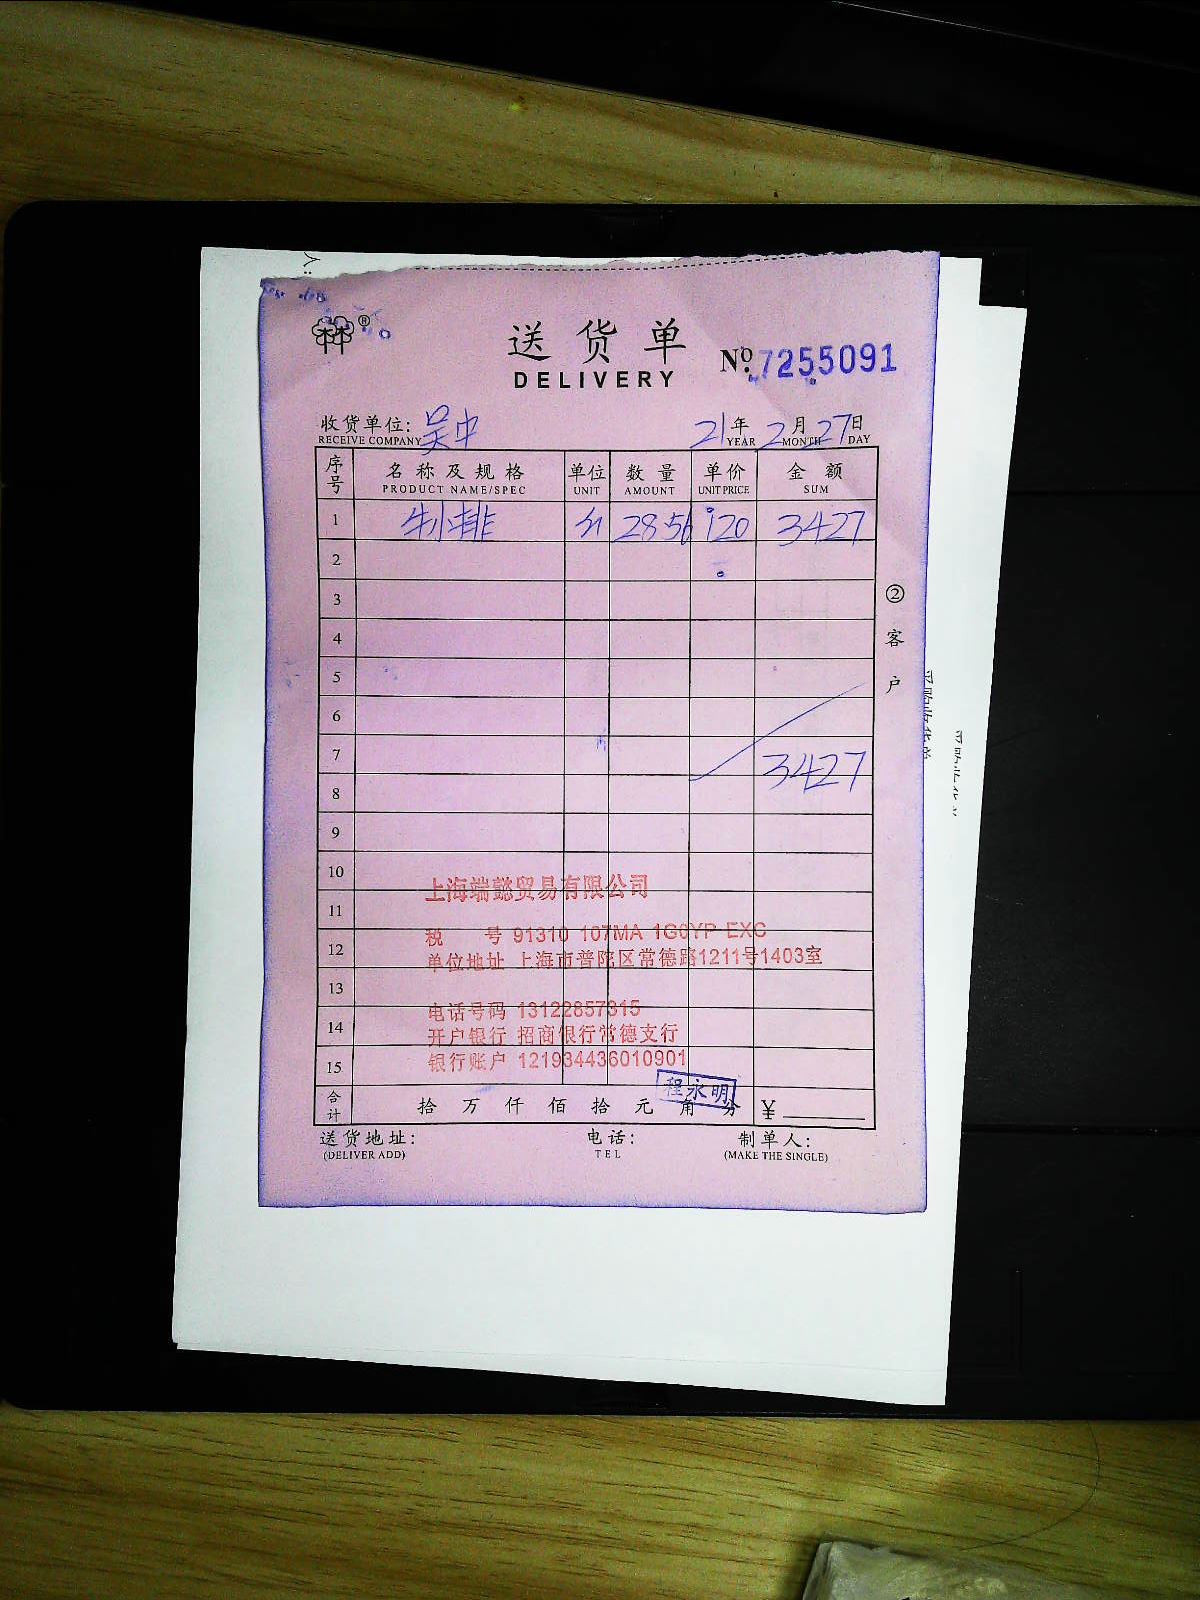 送货单
DELIVERY
№ 7255091
收货单位: 吴中 21年 2月 27日
RECEIVE COMPANY YEAR MONTH DAY
序号 名称及规格 单位 数量 单价 金额
PRODUCT NAME/SPEC UNIT AMOUNT UNIT PRICE SUM
1 牛小排 28.56 120 3427
2
3
4
5
6
7 3427
8
9
10
11
12
13
14
15
② 客户
上海端懿贸易有限公司
税 号 91310 107MA 1G0YP EXC
单位地址 上海市普陀区常德路1211号1403室
电话号码 13122857315
开户银行 招商银行常德支行
银行账户 121934436010901
程永明
合计 拾 万 仟 佰 拾 元 角 分 ¥
送货地址: 电话: 制单人:
(DELIVER ADD) TEL (MAKE THE SINGLE)